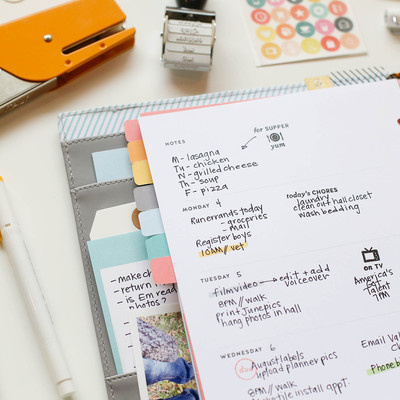 NOTES
for SUPPER
yum
M - lasagna
Tu - chicken
N - grilled cheese
Th - soup
F - pizza
MONDAY 4
Run errands today
- groceries
- mail
Register boys
10AM // vet
today's CHORES
laundry
clean out hall closet
wash bedding
TUESDAY 5
film video → edit + add
voiceover
8PM // walk
print June pics
hang photos in hall
ON TV
America's
Got
Talent
7PM
WEDNESDAY 6
due
August labels
upload planner pics
8PM // walk
install appt.
Email
Phone
- make
- return
- is Em read
photos?